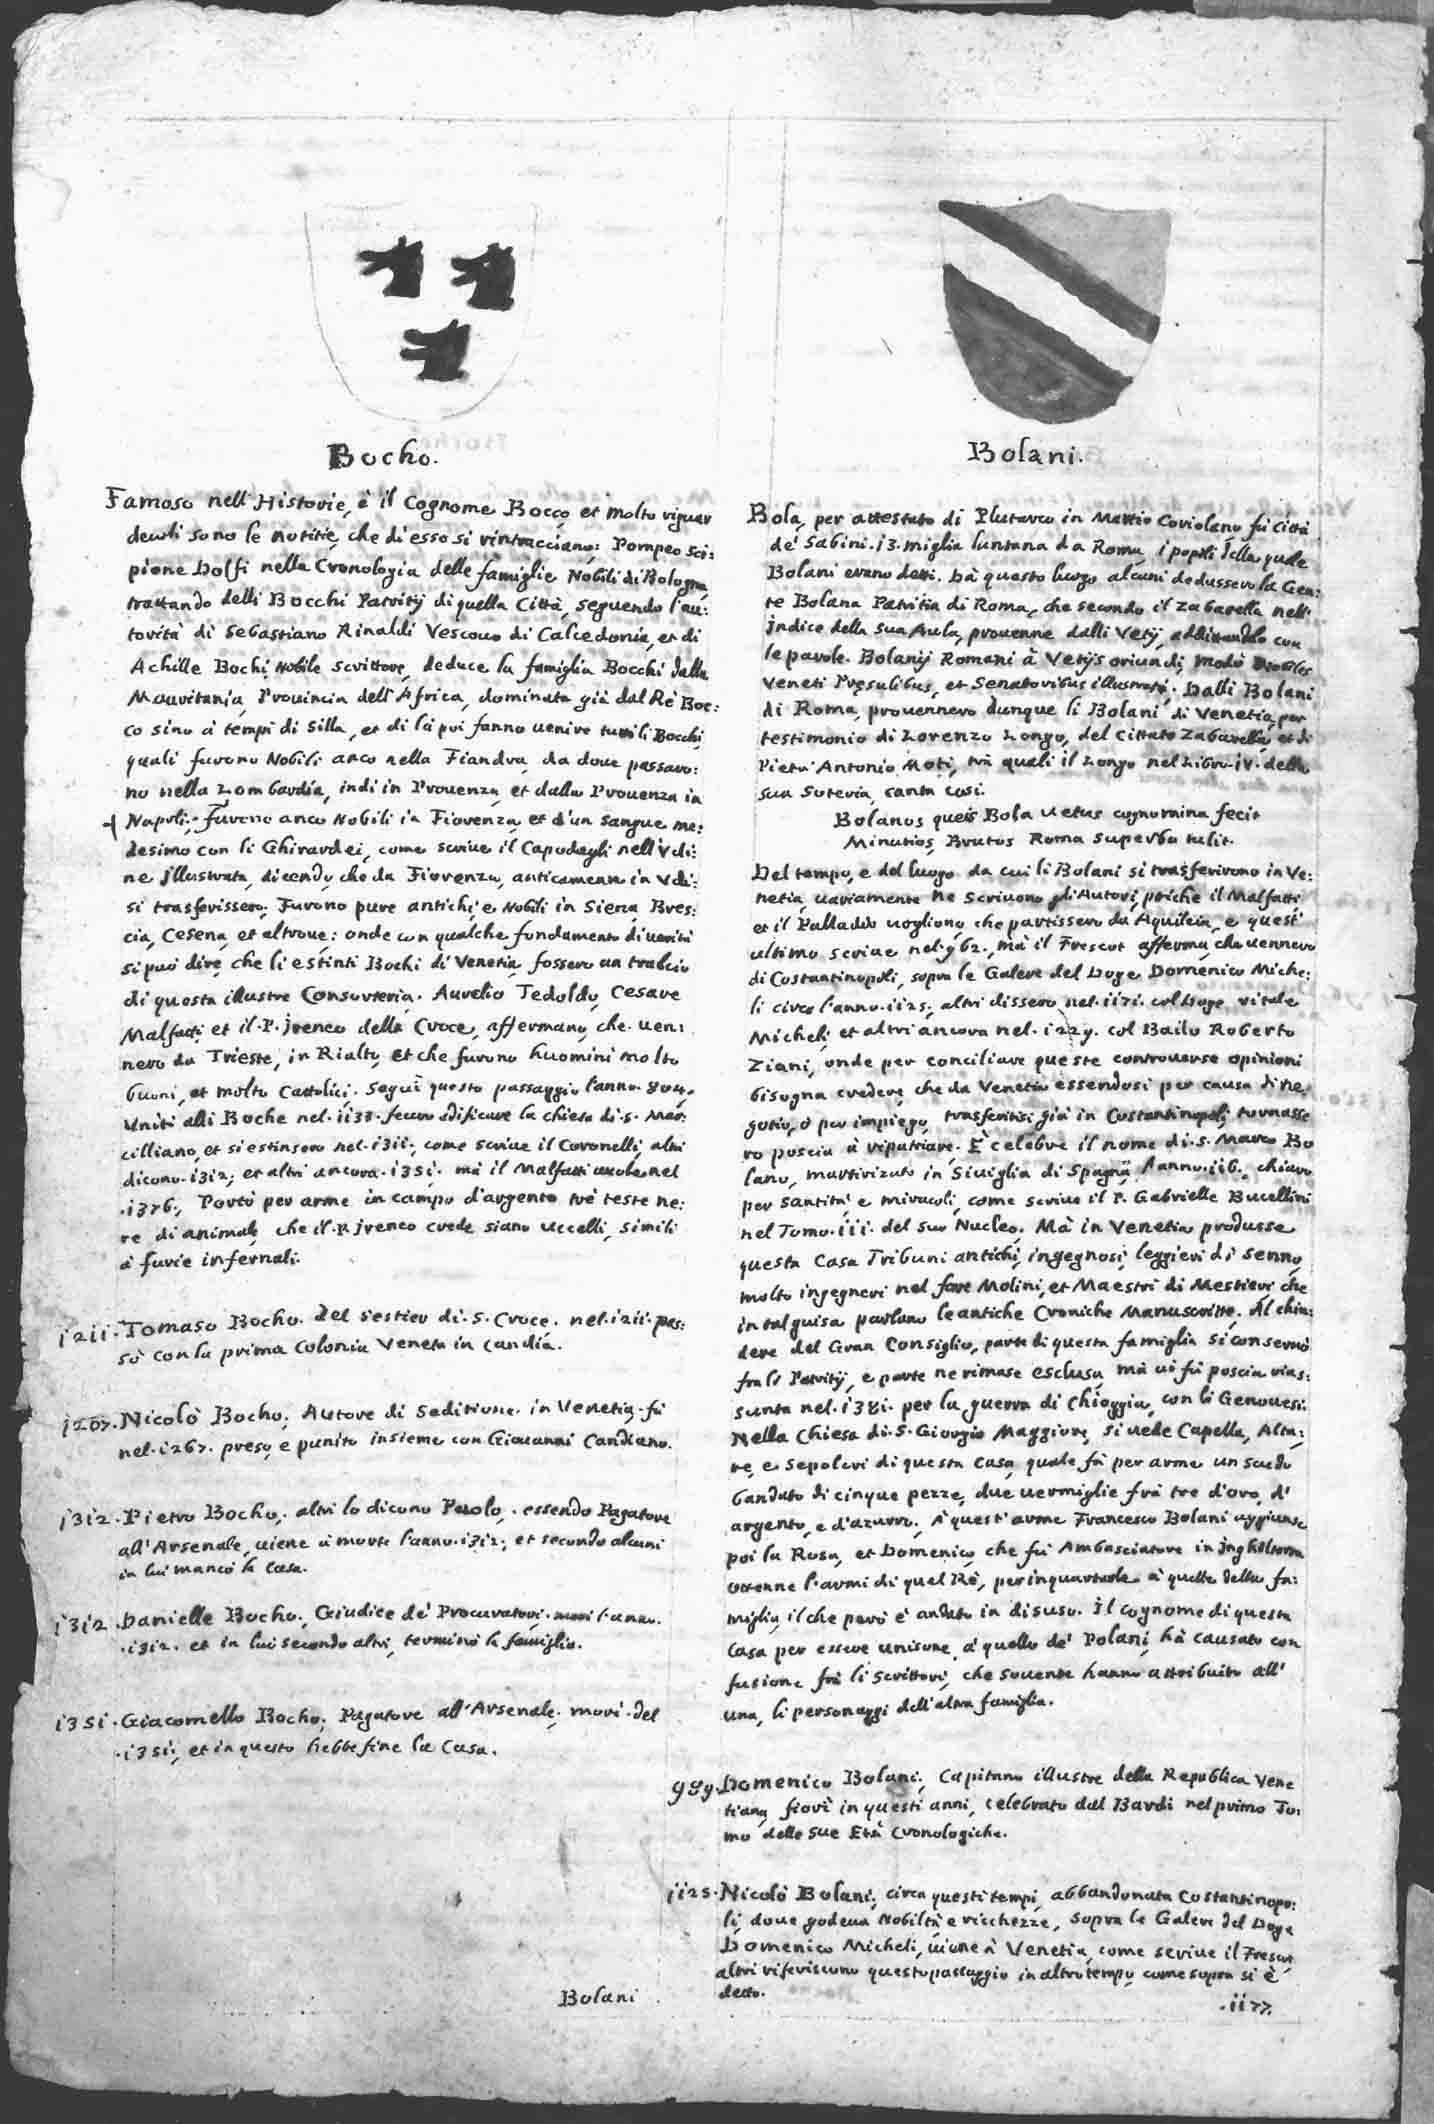 Bocho.
Famoso nell'Historie, è il Cognome Bocco, et molto riguar
deuoli sono le notitie, che di esso si rintracciano: Pompeo Sci:
pione Dolfi nella Cronologia delle famiglie Nobili di Bologna,
trattando delli Bocchi Patritij di quella Città, seguendo l'au:
torità di Sebastiano Rinaldi Vescouo di Calcedonia, et di
Achille Bochi, Nobile scrittore, deduce la famiglia Bocchi dalla
Mauritania, Prouincia dell'Africa, dominata già dal Rè Boc:
co sino à tempi di Silla, et di là poi fanno uenire tutti li Bocchi,
quali furono Nobili anco nella Fiandra, da doue passaro:
no nella Lombardia, indi in Prouenza, et dalla Prouenza in
Napoli. Furono anco Nobili in Fiorenza, et d'un sangue me:
desimo con li Ghirardei, come scriue il Capodagli nell'Vdi:
ne Jllustrata, dicendo, che da Fiorenza, anticamente in Vdi:
si trasferissero. Furono pure antichi, e Nobili in Siena, Bres:
cia, Cesena, et altroue: onde con qualche fondamento di uerità
si può dire, che li estinti Bochi di Venetia, fossero un tralcio
di questa illustre Consorteria. Aurelio Tedoldo, Cesare
Malfatti, et il P. Jreneo della Croce, affermano, che uen:
nero da Trieste, in Rialto, et che furono huomini molto
buoni, et molto Cattolici. Seguì questo passaggio l'anno. 804.
Vniti alli Boche nel. 1133. fecero edificare la chiesa di. S. Mar:
cilliano, et si estinsero nel. 1311; come scriue il Coronelli, altri
dicono. 1312; et altri ancora. 1351; mà il Malfatti uuole nel
.1376; Portò per arme in campo d'argento trè teste ne:
re di animale, che il. P. Jreneo crede, siano uccelli, simili
à furie infernali.
1211. Tomaso Bocho. del sestier di. S. Croce. nel. 1211. pas:
sò con la prima Colonia Veneta in Candia.
1267. Nicolò Bocho; Autore di Seditione in Venetia, fù
nel. 1267. preso, e punito insieme con Giouanni Candiano.
1312. Pietro Bocho; altri lo dicono Polo; essendo Pagatore
all'Arsenale, uiene à morte l'anno. 1312; et secondo alcuni
in lui mancò la Casa.
1312. Danielle Bocho; Giudice de' Procuratori. morì l'anno.
.1312. et in lui secondo altri, terminò la famiglia.
1351. Giacomello Bocho; Pagatore all'Arsenale; morì del
.1351; et in questo hebbe fine la Casa.
Bolani
Bolani.
Bola, per attestato di Plutarco in Martio Coriolano, fù Città
de' Sabini. 13. miglia luntana da Roma, i popoli della quale
Bolani erano detti. Dà questo luogo alcuni dedussero la Gen:
te Bolana Patritia di Roma, che secondo il Zabarella nell'
Jndice della sua Aula, prouenne dalli Vetij, additandolo con
le parole. Bolanij Romani à Vetijs oriundi, modò Nobiles
Veneti Pręsulibus, et Senatoribus illustrati. Dalli Bolani
di Roma, prouennero dunque li Bolani di Venetia, per
testimonio di Lorenzo Longo, del cittato Zabarella, et di
Pietr'Antonio Moti, trà quali il Longo nel Libro. IV. della
sua Soteria, canta cosi.
Bolanos queis Bola uetus cognomina fecit
Minutios, Brutos Roma superbo tulit.
Del tempo, e del luogo da cui li Bolani si trasferirono in Ve:
netia, uariamente ne scriuono gli Autori, poiche il Malfatti
et il Palladio uogliono, che partissero da Aquileia, e quest'
ultimo scriue nel. 962; mà il Frescot afferma, che uennero
di Costantinopoli, sopra le Galere del Doge Domenico Miche:
li circa l'anno. 1125; altri dissero nel. 1171. col Doge Vitale
Micheli, et altri ancora nel. 1229. col Bailo Roberto
Ziani, onde per conciliare queste controuerse opinioni
bisogna credere, che da Venetia essendosi per causa di ne:
gotio, ò per impiego, trasferitisi già in Costantinopoli, tornasse
ro poscia à ripatriare. È celebre il nome di. S. Marco Bo
lano, martirizato in Siuiglia di Spagna, l'anno. 116. chiaro
per santità, e miracoli, come scriue il P. Gabrielle Bucellini
nel Tomo. III. del suo Nucleo. Mà in Venetia produsse
questa Casa Tribuni antichi, ingegnosi, leggieri di senno,
molto ingegneri nel fare Molini, et Maestri di Mestieri che
in tal guisa parlano le antiche Croniche Manuscritte. Al chiu:
dere del Gran Consiglio, parte di questa famiglia si conseruò
fra li Patritij, e parte ne rimase esclusa, mà ui fù poscia rias:
sunta nel. 1381. per la guerra di Chioggia, con li Genouesi.
Nella Chiesa di. S. Giorgio Maggiore, si uede Capella, Alta:
re, e sepolcri di questa Casa, quale fà per arme un scudo
bandato di cinque pezze, due uermiglie frà tre d'oro, d'
argento, e d'azurro. A quest'arme Francesco Bolani aggiunse
poi la Rosa, et Domenico, che fù Ambasciatore in Jnghilterra
ottenne l'armi di quel Rè, per inquartarle à quelle della fa:
miglia, il che però è andato in disuso. Jl cognome di questa
Casa per essere unisone, à quello de' Polani, hà causato con
fusione frà li Scrittori, che souente hanno attribuito all'
una, li personaggi dell'altra famiglia.
989. Domenico Bolani; Capitano illustre della Republica Vene
tiana, fiorì in questi anni, celebrato dal Bardi nel primo To:
mo delle sue Età Cronologiche.
1125. Nicolò Bolani; circa questi tempi, abbandonata Costantinopo:
li, doue godeua Nobiltà e ricchezze, sopra le Galere del Doge
Domenico Micheli, uiene à Venetia, come scriue il Frescot
altri riferiscono questo passaggio in altro tempo, come sopra si è
detto.
.1177.